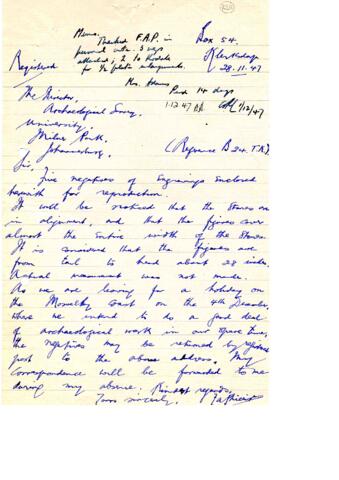 Memo.
Box 54.
Klerksdorp
28.11.47
Registered
Mrs. 
Post 14 days
1.12.47
1/12/47
The Director,
Archaeological Survey
University,
Milner Park,
Johannesburg.
(Reference B 24. T.R.)
Sir,
Five negatives of Engravings enclosed
herewith for reproduction.
It will be noticed that the stones are
in alignment, and that the figures cover
almost the entire width of the stones.
It is surmised that the figures are
from tail to head about 28 inches.
Actual measurement was not made.
As we are leaving for a holiday on
the coast on the 4th December,
where we intend to do a good deal
of archaeological work in our spare time,
the negatives may be returned by registered
post to the above address. Any
correspondence will be forwarded to me
during my absence. Kindest regards,
Yours sincerely,